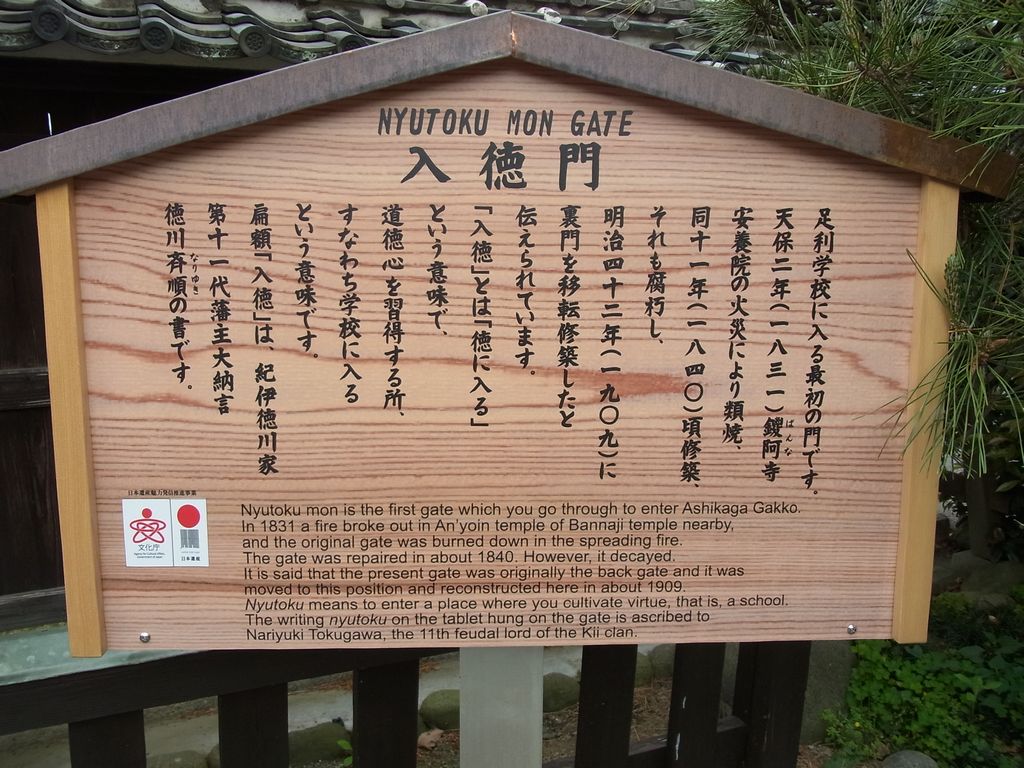 NYUTOKU MON GATE
入徳門
足利学校に入る最初の門です。
天保二年(一八三一)鑁阿寺
ばんな
安養院の火災により類焼、
同十一年(一八四〇)頃修築、
それも腐朽し、
明治四十二年(一九〇九)に
裏門を移転修築したと
伝えられています。
「入徳」とは「徳に入る」
という意味で、
道徳心を習得する所、
すなわち学校に入る
という意味です。
扁額「入徳」は、紀伊徳川家
第十一代藩主大納言
徳川斉順の書です。
なりゆき
日本遺産魅力発信推進事業
文化庁
日本遺産
Nyutoku mon is the first gate which you go through to enter Ashikaga Gakko.
In 1831 a fire broke out in An'yoin temple of Bannaji temple nearby,
and the original gate was burned down in the spreading fire.
The gate was repaired in about 1840. However, it decayed.
It is said that the present gate was originally the back gate and it was
moved to this position and reconstructed here in about 1909.
Nyutoku means to enter a place where you cultivate virtue, that is, a school.
The writing nyutoku on the tablet hung on the gate is ascribed to
Nariyuki Tokugawa, the 11th feudal lord of the Kii clan.